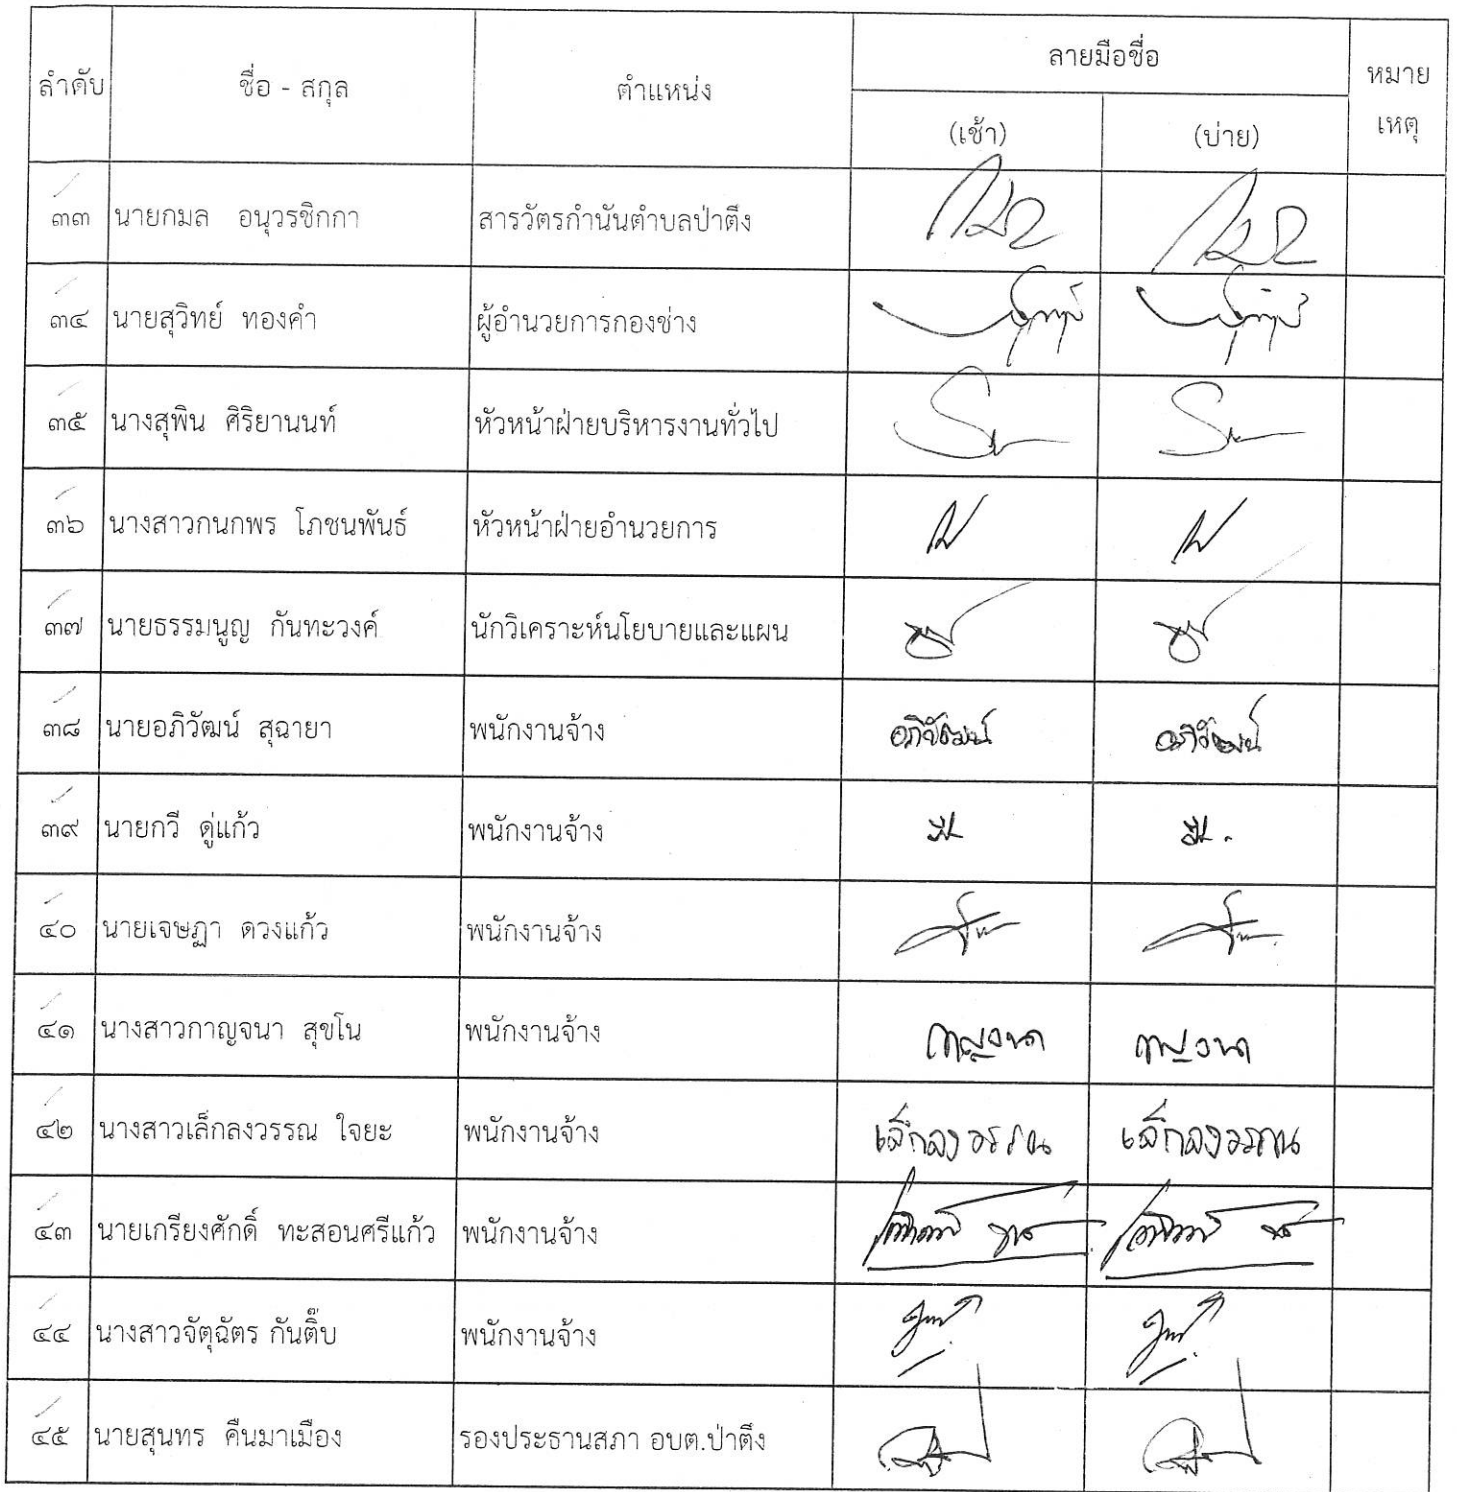 ลำดับ ชื่อ - สกุล ตำแหน่ง ลายมือชื่อ หมายเหตุ
(เช้า) (บ่าย)
๓๓ นายกมล อนุวรชิกกา สารวัตรกำนันตำบลป่าตึง
๓๔ นายสุวิทย์ ทองคำ ผู้อำนวยการกองช่าง
๓๕ นางสุพิน ศิริยานนท์ หัวหน้าฝ่ายบริหารงานทั่วไป
๓๖ นางสาวกนกพร โภชนพันธ์ หัวหน้าฝ่ายอำนวยการ
๓๗ นายธรรมนูญ กันทะวงค์ นักวิเคราะห์นโยบายและแผน
๓๘ นายอภิวัฒน์ สุฉายา พนักงานจ้าง อภิวัฒน์ อภิวัฒน์
๓๙ นายกวี ดู่แก้ว พนักงานจ้าง
๔๐ นายเจษฏา ดวงแก้ว พนักงานจ้าง
๔๑ นางสาวกาญจนา สุขโน พนักงานจ้าง กาญจนา กาญจนา
๔๒ นางสาวเล็กลงวรรณ ใจยะ พนักงานจ้าง เล็กลงวรรณ เล็กลงวรรณ
๔๓ นายเกรียงศักดิ์ ทะสอนศรีแก้ว พนักงานจ้าง
๔๔ นางสาวจัตุฉัตร กันติ๊บ พนักงานจ้าง
๔๕ นายสุนทร คืนมาเมือง รองประธานสภา อบต.ป่าตึง